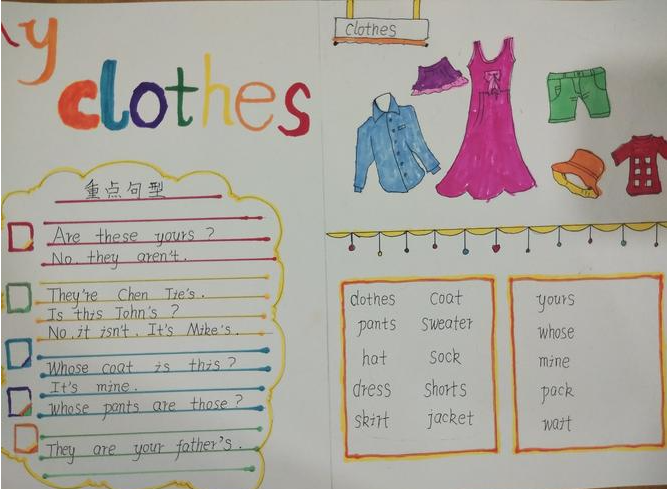 My
clothes
重点句型
Are these yours?
No, they aren't.
They're Chen Jie's.
Is this John's?
No, it isn't. It's Mike's.
Whose coat is this?
It's mine.
whose pants are those?
They are your father's.
clothes
clothes coat
pants sweater
hat sock
dress shorts
skirt jacket
yours
whose
mine
pack
wait